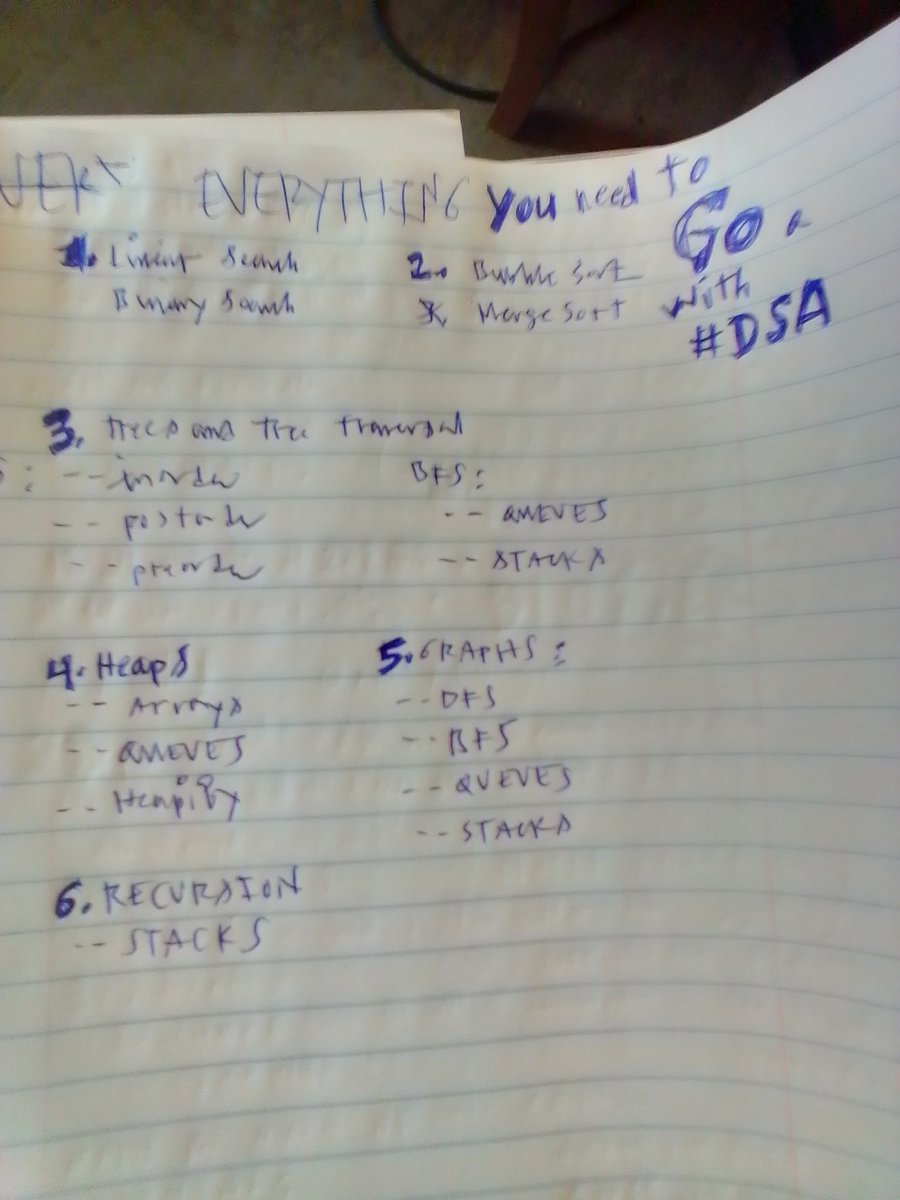 EVERYTHING you need to
GO
with
#DSA
1. Linear Search
Binary Search
2. Bubble Sort
Merge Sort
3. Trees and Tree traversal
-- inorder
-- postorder
-- preorder
BFS:
-- QUEUES
-- STACKS
4. HeapS
-- Arrays
-- QUEUES
-- Heapify
5. GRAPHS:
-- DFS
-- BFS
-- QUEUES
-- STACKS
6. RECURSION
-- STACKS